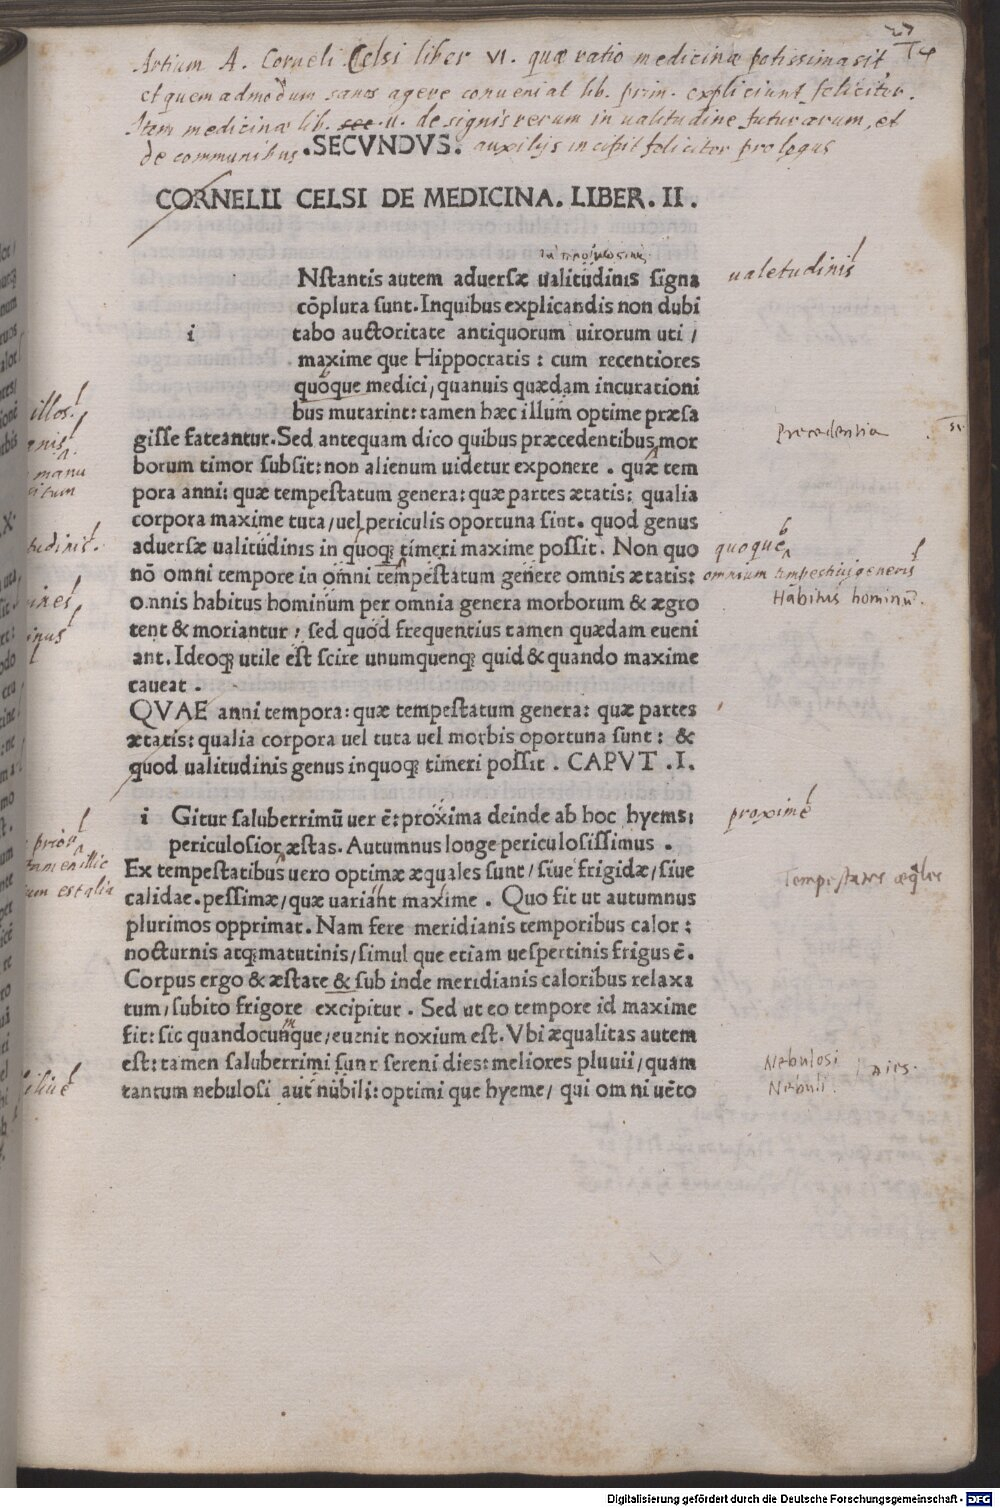 27
Artium A. Corneli Celsi liber VI. quæ ratio medicinæ potissima sit
et quemadmodum sanos agere conveniat lib. prim. expliciunt feliciter.
Item medicinæ lib. sec. ii. de signis rerum in ualitudine futurarum, et
de communibus .SECVNDVS. auxilijs incipit feliciter prologus
CORNELII CELSI DE MEDICINA. LIBER. II.
NStantis autem aduersæ ualitudinis signa
cõplura sunt. Inquibus explicandis non dubi
i tabo auctoritate antiquorum uirorum uti /
maxime que Hippocratis : cum recentiores
quoque medici, quanuis quædam incurationi
bus mutarint: tamen hæc illum optime præsa
gisse fateantur. Sed antequam dico quibus præcedentibus mor
borum timor subsit: non alienum uidetur exponere . quæ tem
pora anni: quæ tempestatum genera: quæ partes ætatis: qualia
corpora maxime tuta/uel periculis oportuna sint. quod genus
aduersæ ualitudinis in quoqꝫ timeri maxime possit. Non quo
nõ omni tempore in omni tempestatum genere omnis ætatis:
omnis habitus hominum per omnia genera morborum & ægro
tent & moriantur: sed quod frequentius tamen quædam eueni
ant. Ideoqꝫ utile est scire unumquenqꝫ quid & quando maxime
caueat .
QVAE anni tempora: quæ tempestatum genera: quæ partes
ætatis: qualia corpora uel tuta uel morbis oportuna sunt: &
quod ualitudinis genus inquoqꝫ timeri possit . CAPVT .I.
i Gitur saluberrimũ uer ẽ: proxima deinde ab hoc hyems:
periculosior æstas. Autumnus longe periculosissimus .
Ex tempestatibus uero optimæ æquales sunt/siue frigidæ/siue
calidae. pessimæ/quæ uariant maxime . Quo fit ut autumnus
plurimos opprimat. Nam fere meridianis temporibus calor :
nocturnis atqꝫ matutinis/simul que etiam uespertinis frigus ẽ.
Corpus ergo & æstate & sub inde meridianis caloribus relaxa
tum/subito frigore excipitur . Sed ut eo tempore id maxime
fit: sic quandocunque/euenit noxium est. Vbi æqualitas autem
est: tamen saluberrimi sunt sereni dies: meliores pluuii/quam
tantum nebulosi aut nubili: optimi que hyeme/ qui omni uẽto
ualetudinis
Precedentia
quoque
omnium tempestiuis generis
Habitus hominũ.
proxime
Tempestates
Nebulosi
Nebuli
Dies.
illos.
manu
prior
illic
est alia
Digitalisierung gefördert durch die Deutsche Forschungsgemeinschaft - DFG